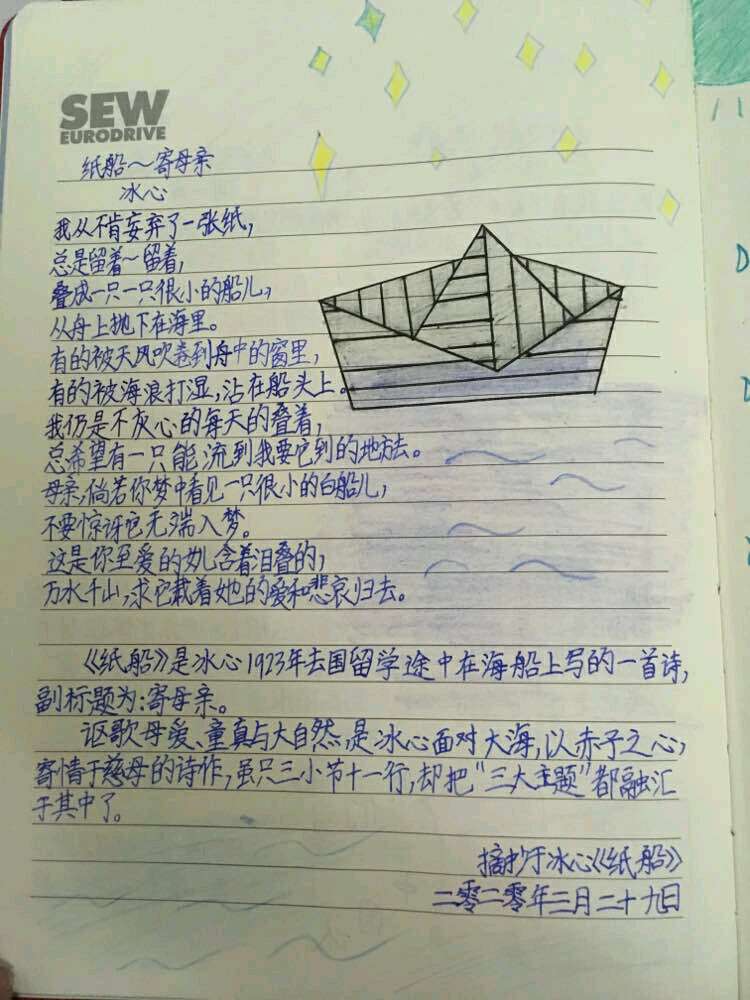 SEW
EURODRIVE
纸船~寄母亲
冰心
我从不肯妄弃了一张纸,
总是留着~留着,
叠成一只一只很小的船儿,
从舟上抛下在海里。
有的被天风吹卷到舟中的窗里,
有的被海浪打湿,沾在船头上。
我仍是不灰心的每天的叠着,
总希望有一只能流到我要它到的地方去。
母亲,倘若你梦中看见一只很小的白船儿,
不要惊讶它无端入梦。
这是你至爱的女儿含着泪叠的,
万水千山,求它载着她的爱和悲哀归去。
《纸船》是冰心1923年去国留学途中在海船上写的一首诗,
副标题为:寄母亲。
讴歌母爱、童真与大自然,是冰心面对大海,以赤子之心,
寄情于慈母的诗作,虽只三小节十一行,却把"三大主题"都融汇
于其中了。
摘抄于冰心《纸船》
二零二零年二月二十九日